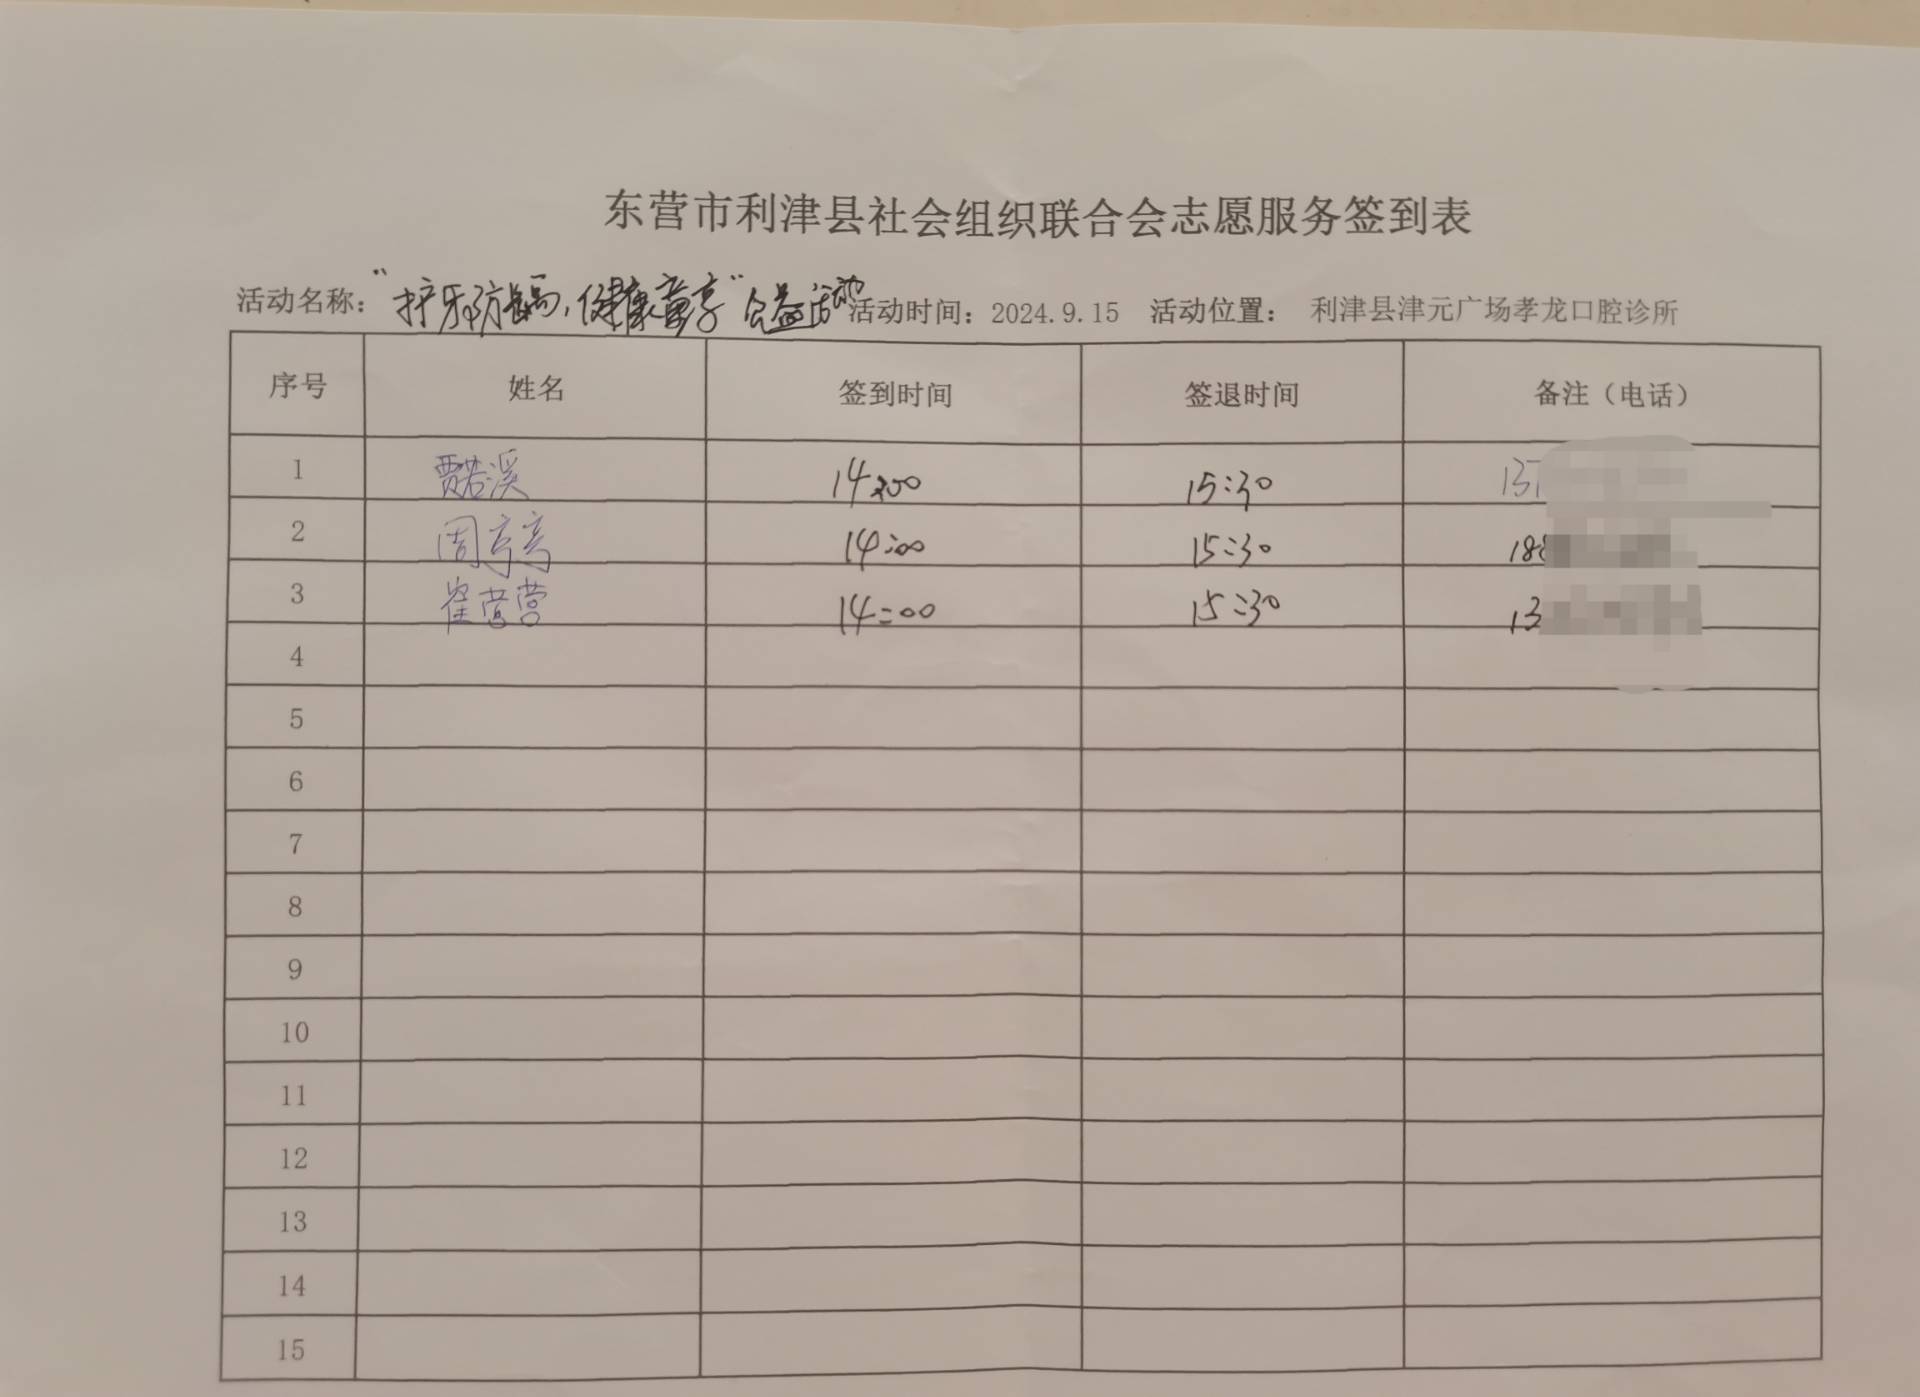 东营市利津县社会组织联合会志愿服务签到表
活动名称："护牙防龋,健康童享"公益活动 活动时间：2024.9.15 活动位置： 利津县津元广场孝龙口腔诊所
序号 姓名 签到时间 签退时间 备注（电话）
1 贾若溪 14:00 15:30 137
2 周亭亭 14:00 15:30 188
3 崔营营 14:00 15:30 13
4
5
6
7
8
9
10
11
12
13
14
15